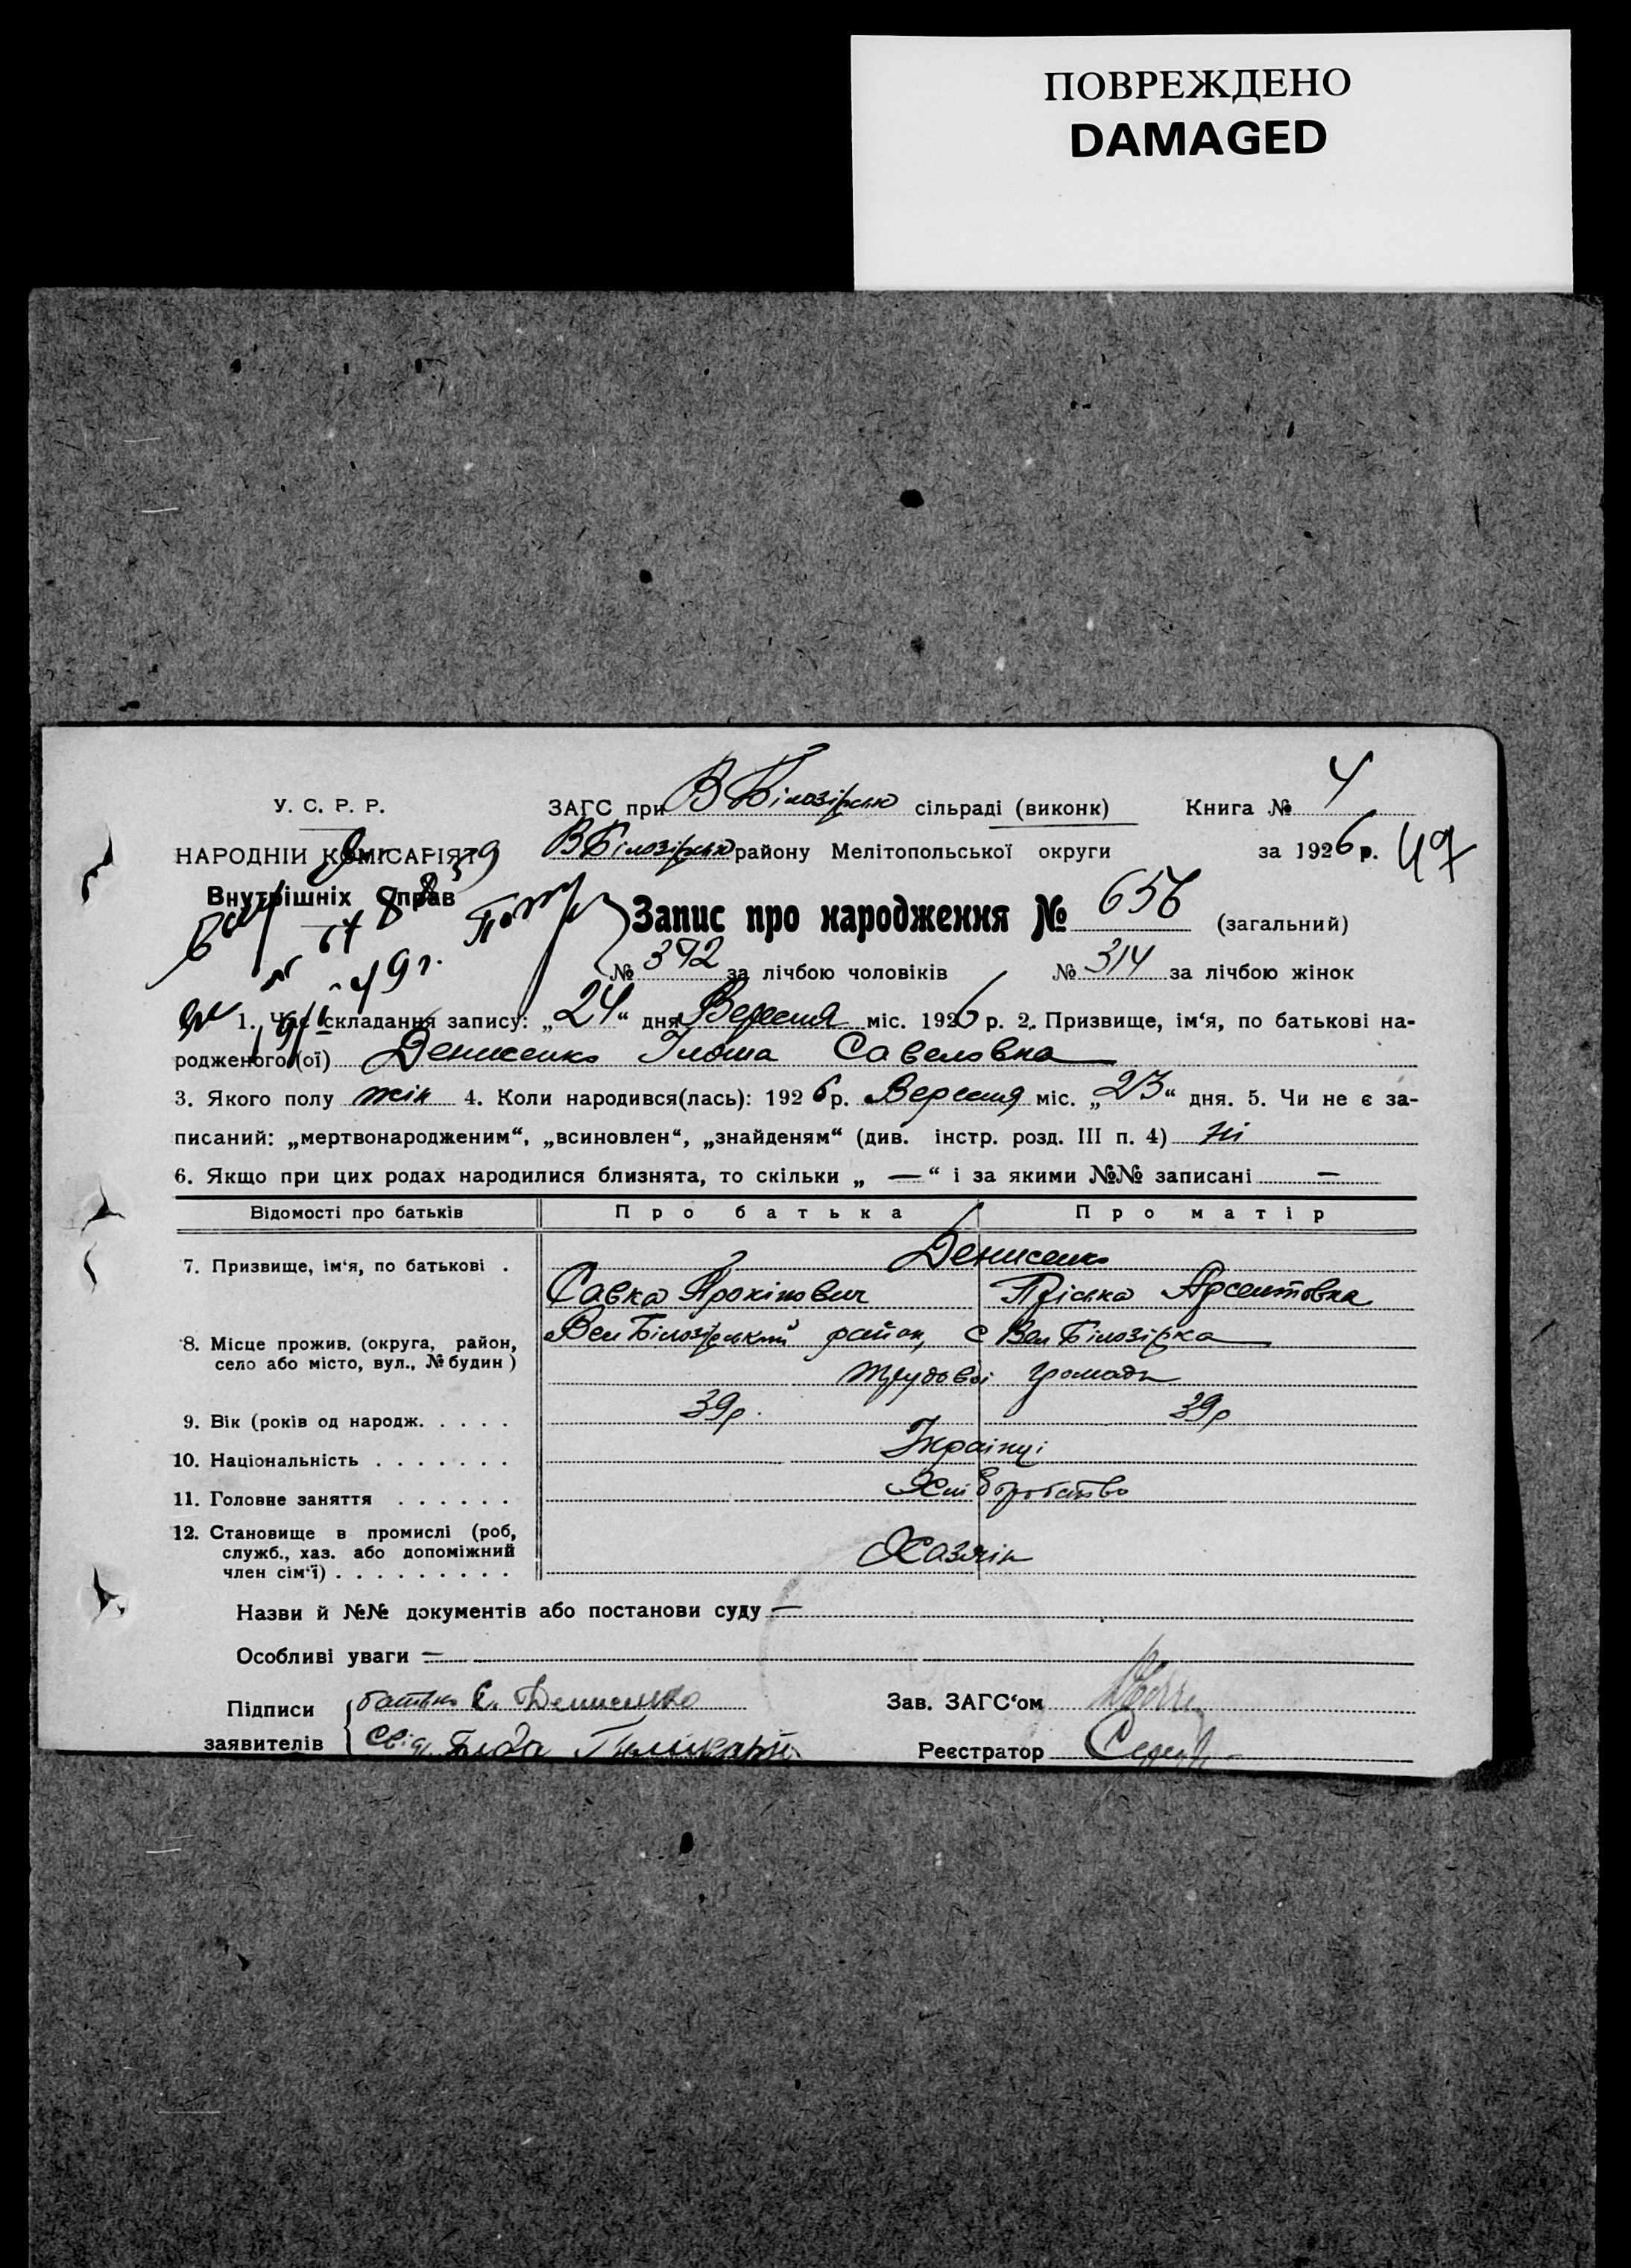 ПОВРЕЖДЕНО
DAMAGED
У. С. Р. Р.
НАРОДНІЙ КОМІСАРІЯТ
Внутрішніх Справ
ЗАГС при В Білозірськ сільраді (виконк) Книга № 4
В Білозірськ району Мелітопольської округи за 1926 р. 47
Запис про народження № 656 (загальний)
№ 392 за лічбою чоловіків № 314 за лічбою жінок
1. Час складання запису: „24“ дня Вересня міс. 1926 р. 2. Призвище, ім‘я, по батькові на-
родженого (ої) Денисенко Савеловна
3. Якого полу жін 4. Коли народився(лась): 1926 р. Вересня міс. „23“ дня. 5. Чи не є за-
писаний: „мертвонародженим“, „всиновлен“, „знайденям“ (див. інстр. розд. III п. 4) ні
6. Якщо при цих родах народилися близнята, то скільки „ — “ і за якими №№ записані —
Відомості про батьків Про батька Про матір
7. Призвище, ім‘я, по батькові . Денисенко
Савка Прокіпович Пріська Арсентовна
8. Місце прожив. (округа, район, село або місто, вул., № будин) Вел Білозірський район, с Вел Білозірка
трудової громади
9. Вік (років од народж. . . . . 39р. 39р
10. Національність . . . . . . . Українці
11. Головне заняття . . . . . . Хліборобство
12. Становище в промислі (роб,
служб., хаз. або допоміжний
член сім‘ї) . . . . . . . . . Хазяїн
Назви й №№ документів або постанови суду —
Особливі уваги —
Підписи батько С. Денисенко Зав. ЗАГС‘ом
заявителів Свід. Реєстратор